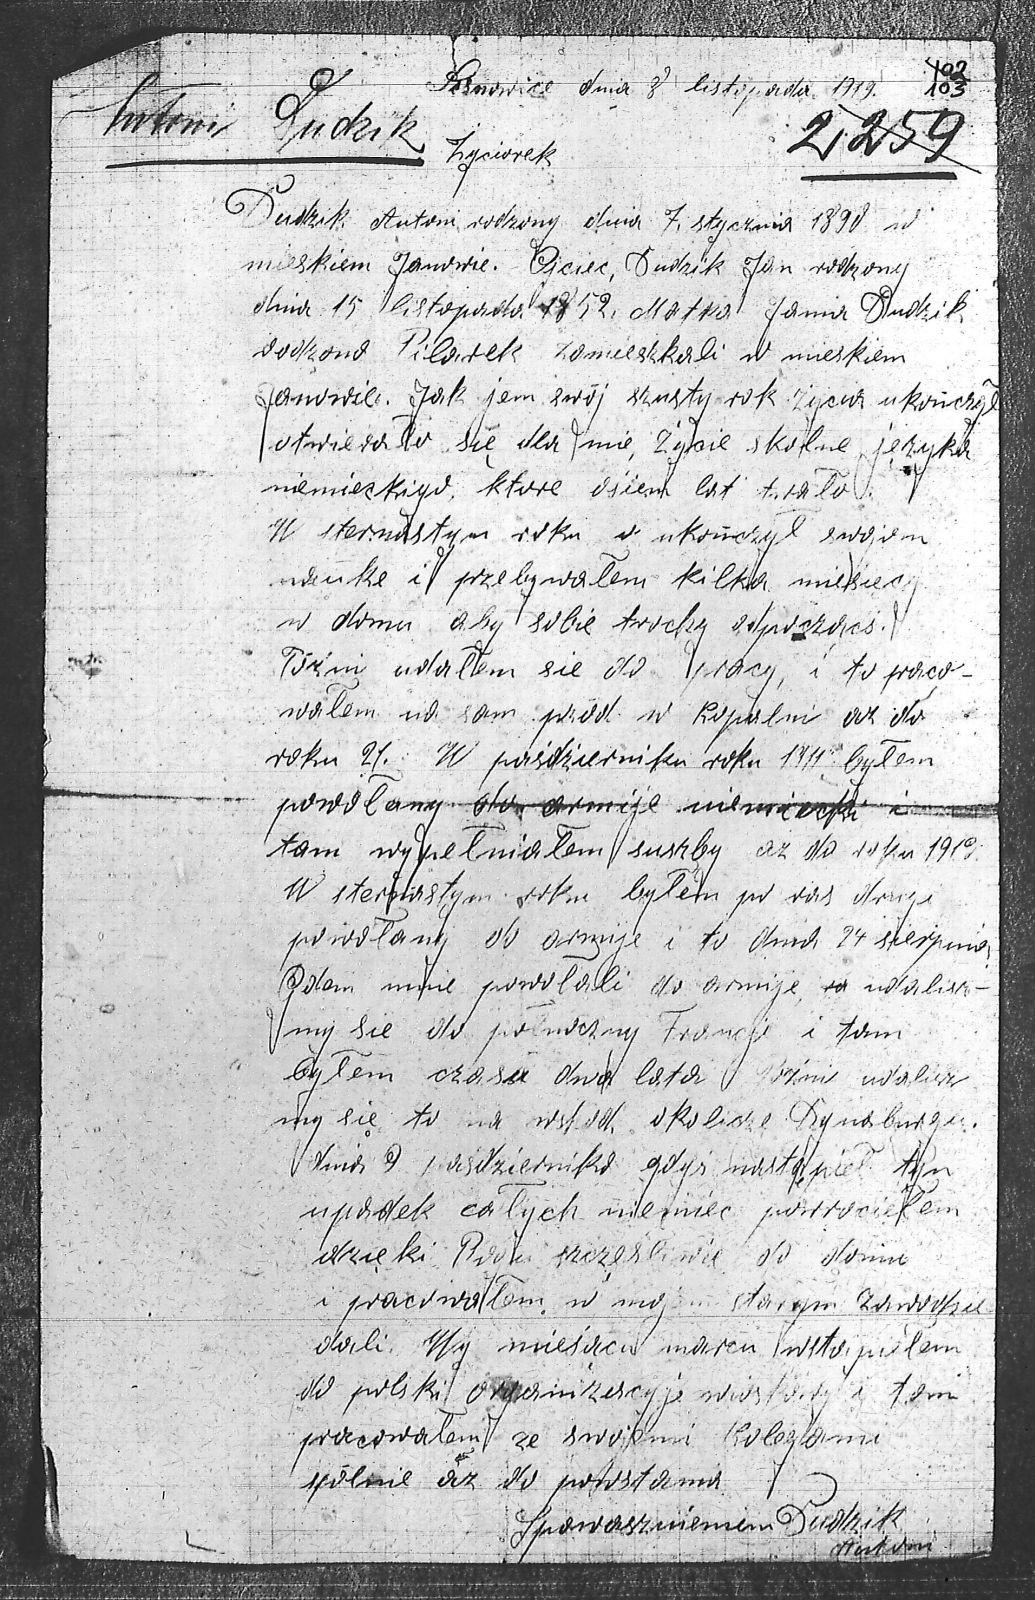 102
103
Sosnowice dnia 8 listopada 1919.
Antoni Dudzik
2,259
Życiorek
Dudzik Antoni rodzony dnia 7. stycznia 1890 w
mieskiem Janowie. Ojciec, Dudzik Jan rodzony
dnia 15 listopada 1852. Matka Janna Dudzik
rodzona Pilarek zamieszkali w mieskiem
Janowie. Jak jem swój szusty rok życia ukończył
otwierało się dla mie, życie skolne języka
niemieckiyo, ktore ósiem lat trwało.
W sternastym roku ukończył swojem
nauke i przebywałem kilka miesięcy
w domu aby sobie trochy odpoczącś.
Późni udałem sie do pracy, i to praco-
wałem na sam przód w kopalni aż do
roku 21. W paśdzierniku roku 1911 byłem
powołany do armije niemiecki i
tam wypełniałem suszby aż do roku 1913.
W sternastym roku byłem po ras drugi
powołany do armije i to dnia 24 sierpnia.
Gdem mnie powołali do armije, udalisz-
my sie do północzny Francje i tam
byłem czasu dwa lata późni udalisz
my się to na wschod okolicze Dynaburga.
dnia 9 paśdziernika gdyś nastąpieł tyn
upadek całych niemiec powrociełem
dzięki Bogu szczęśliwie do domu
i pracowałem w mojem starym zawodzie
dali. Wy mieśącu marcu wstąpiełem
do polski organizacyje wiostowy i tam
pracowałem ze swojemi kolegami
spólnie aż do powstania
Spowaszniemiem Dudzik
Antoni